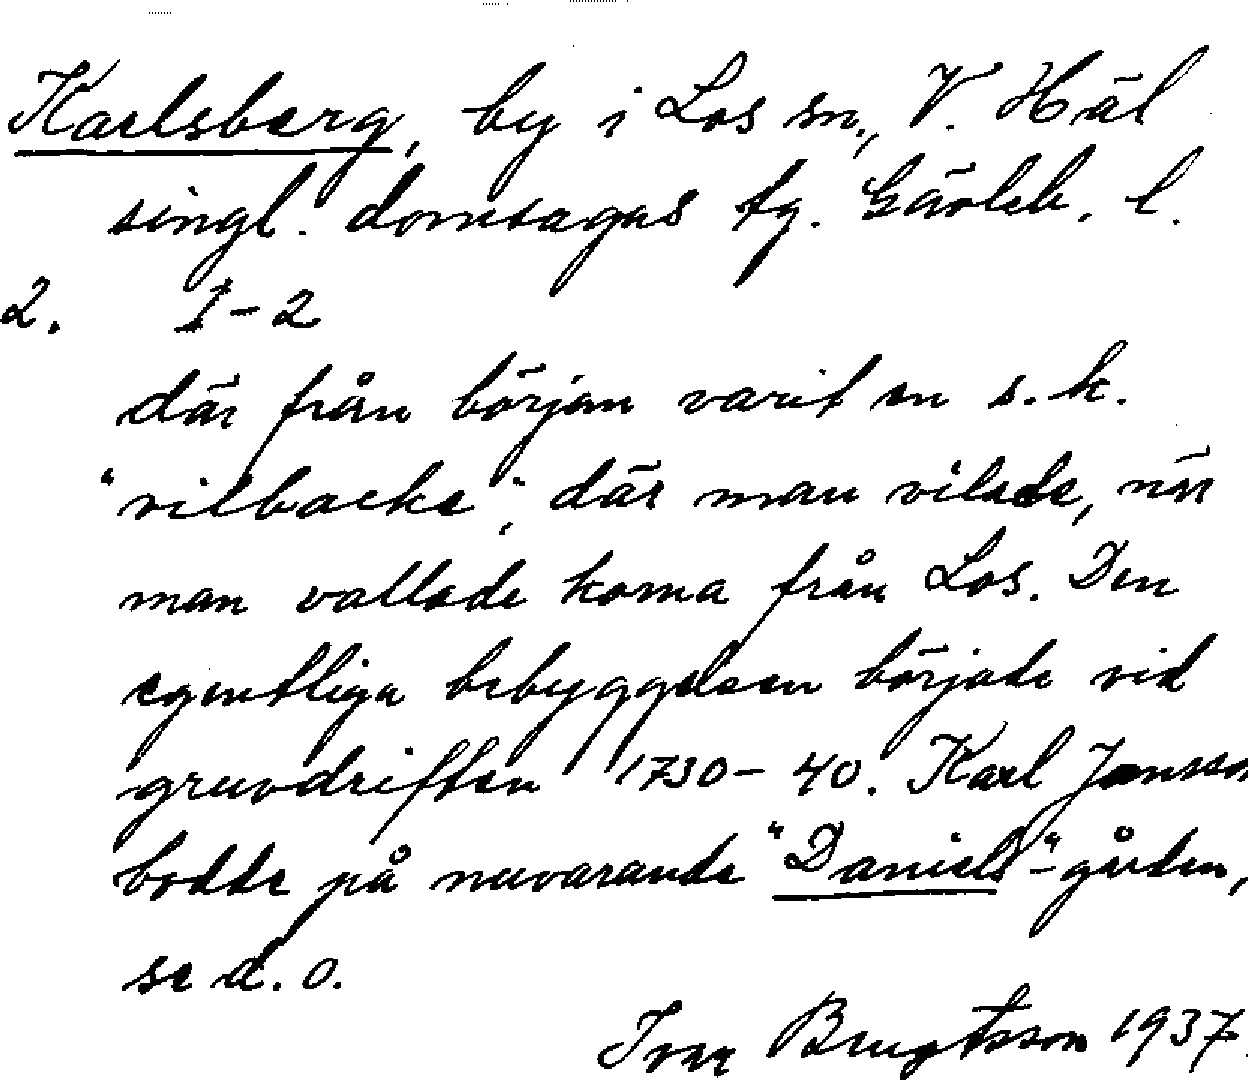 Karlsberg, by i Los sn., V. Häl
singl. domsagas tg. Gävleb. l.
2. 1-2
där från början varit en s. k.
"vilbacke", där man vilade, när
man vallade korna från Los. Den
egentliga bebyggelsen började vid
gruvdriften 1730-40. Karl Jonsson
bodde på nuvarande "Daniels"-gården,
se d. o.
Ivar Bengtsson 1937.